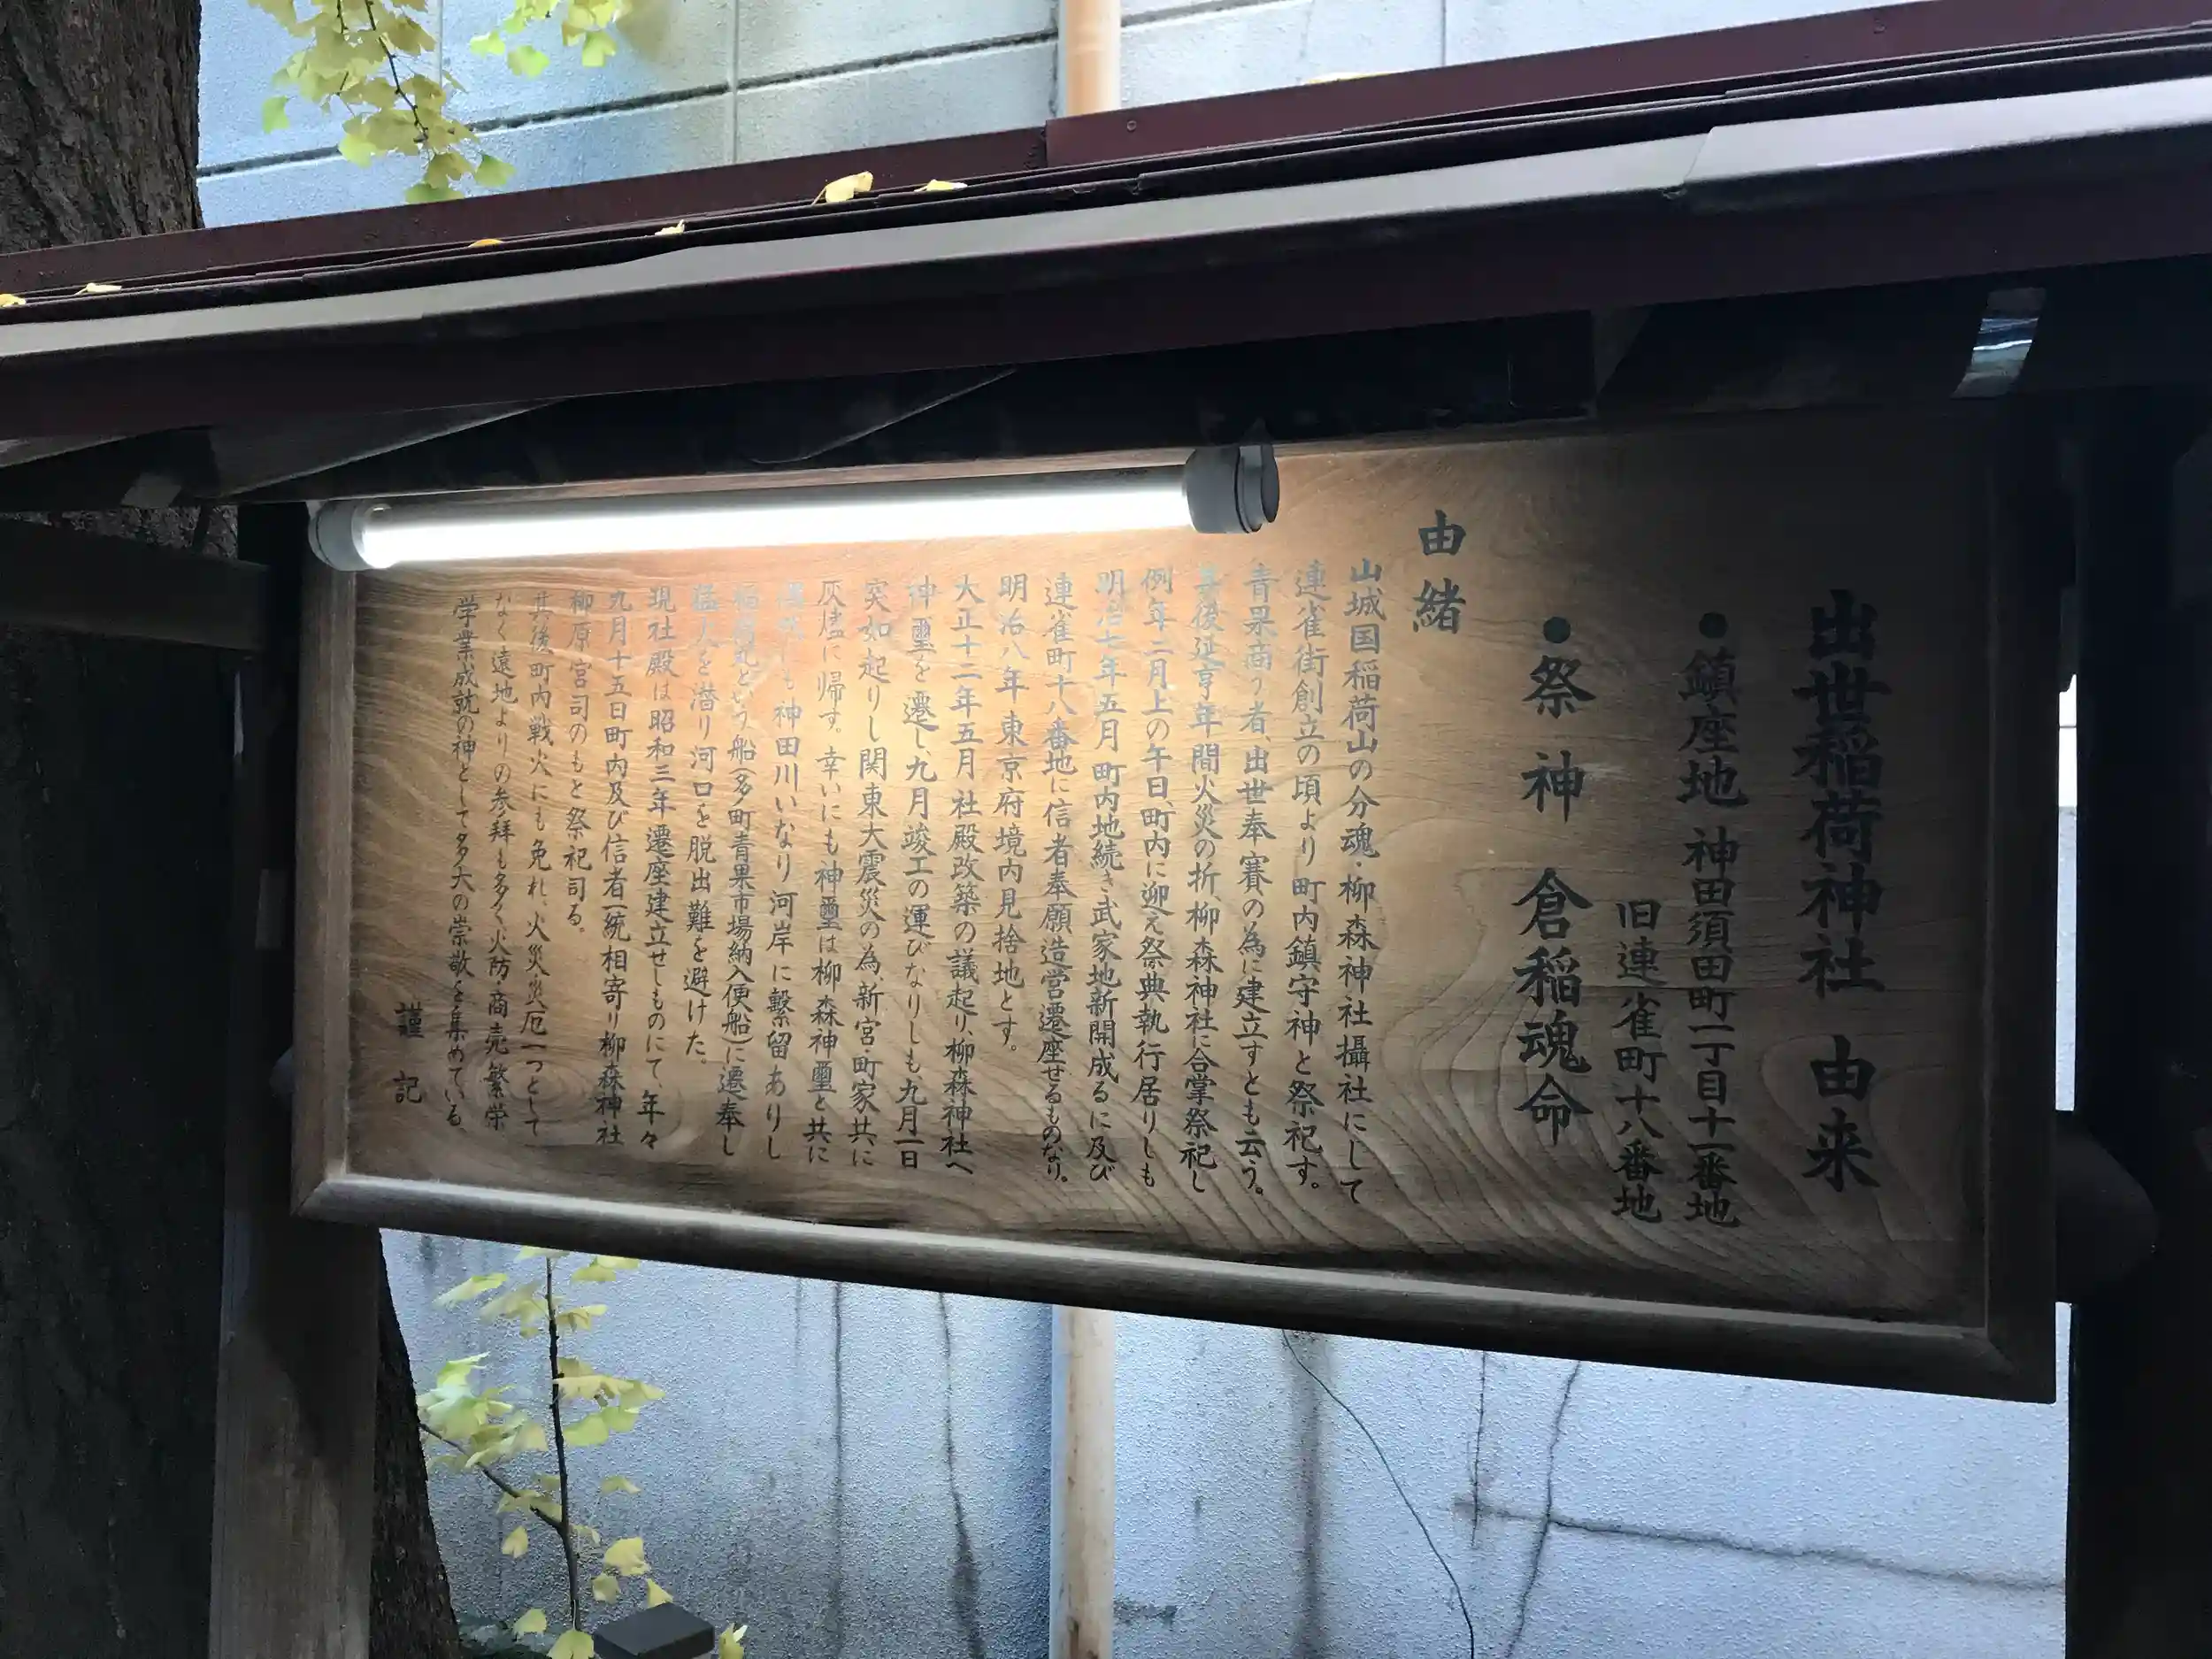 出世稲荷神社 由来
●鎮座地 神田須田町一丁目十一番地
旧連雀町十八番地
●祭神 倉稲魂命
由緒
山城国稲荷山の分魂・柳森神社攝社にして
連雀街創立の頃より町内鎮守神と祭祀す。
青果商う者、出世奉賽の為に建立すとも云う。
其後延享年間火災の折、柳森神社に合掌祭祀し
例年二月上の午日、町内に迎え祭典執行居りしも
明治七年五月町内地続き武家地新開成るに及び
連雀町十八番地に信者奉願造営遷座せるものなり。
明治八年東京府境内見捨地とす。
大正十二年五月社殿改築の議起り、柳森神社へ
神璽を遷し、九月竣工の運びなりしも、九月一日
突如起りし関東大震災の為、新宮町家共に
灰燼に帰す。幸いにも神璽は柳森神璽と共に
も神田川いなり河岸に繋留ありし
稲荷丸という船(多町青果市場納入便船)に遷奉し
猛火を潜り河口を脱出難を避けた。
現社殿は昭和三年遷座建立せしものにて、年々
九月十五日町内及び信者一統相寄り柳森神社
柳原宮司のもと祭祀司る。
其後町内戦火にも免れ、火災災厄一つとして
なく遠地よりの参拝も多く、火防・商売繁栄
学業成就の神として多大の崇敬を集めている。
謹記